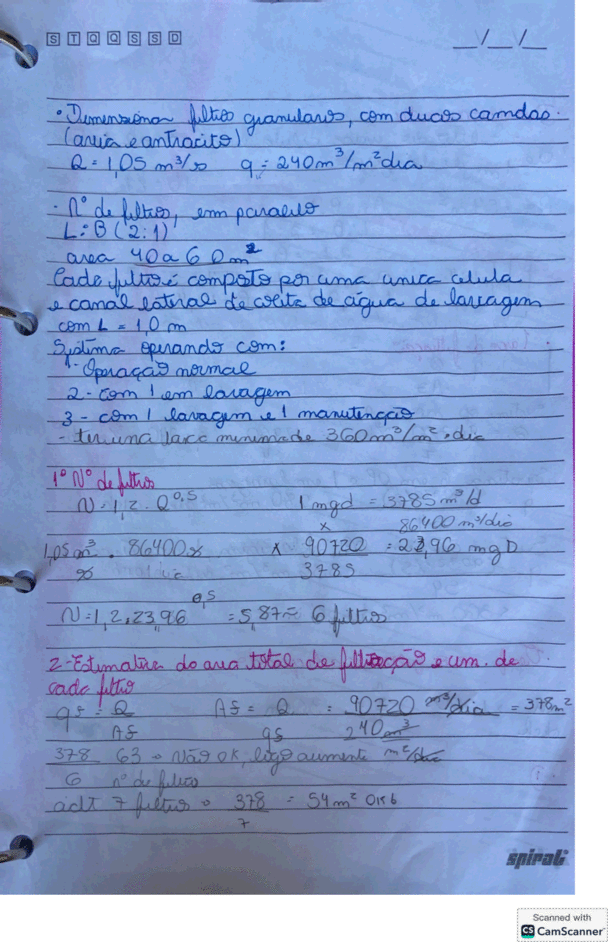 S T Q Q S S D
__/__/__
• Dimensionar filtros granulares, com duas camadas.
(areia e antracito)
Q = 1,05 m³/s q = 240 m³/m² dia
- Nº de filtros, em paralelo
L:B (2:1)
area 40 a 60 m²
Cade filtro é composto por uma unica celula
e canal lateral de coleta de água de lavagem
com L = 1,0 m
Systima operando com:
1- Operação normal
2 - com 1 em lavagem
3 - com 1 lavagem e 1 manutenção
- ter una taxa minima de 360 m³/m².dia
1º Nº de filtros
N = 1,2 . Q^0,5 1 mgd = 3785 m³/d
x 86400 m³/dia
1,05 m³ . 86400 s x 90720 = 23,96 mgD
s dia 3785
N = 1,2 . 23,96^0,5 = 5,87 ≈ 6 filtros
2- Estimativa do area total de filtração e um. de
cada filtro
qf = Q Af = Q = 90720 m³/dia = 378 m²
Af qf 240 m³
378 63 → Não OK, logo aumenta m²/dia
6 nº de filtro
adt 7 filtros → 378 = 54 m²
7
spiral
Scanned with
CS CamScanner